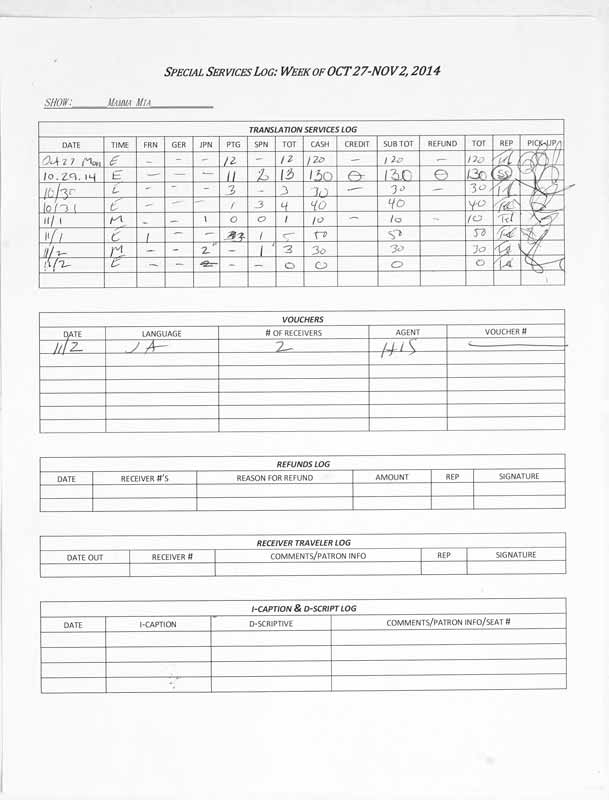 SPECIAL SERVICES LOG: WEEK OF OCT 27-NOV 2, 2014
SHOW: MAMMA MIA
TRANSLATION SERVICES LOG
DATE TIME FRN GER JPN PTG SPN TOT CASH CREDIT SUB TOT REFUND TOT REP PICK-UP
Oct 27 Mon E - - - 12 - 12 120 - 120 - 120
10.29.14 E - - - 11 2 13 130 0 130 0 130 SS
10/30 E - - - 3 - 3 30 - 30 - 30
10/31 E - - - 1 3 4 40 40 40
11/1 M - - 1 0 0 1 10 - 10 - 10
11/1 E 1 - - 3 1 5 50 50 50
11/2 M - - 2 - 1 3 30 30 30
11/2 E - - - - 0 0 0 0
VOUCHERS
DATE LANGUAGE # OF RECEIVERS AGENT VOUCHER #
11/2 JA 2 HIS
REFUNDS LOG
DATE RECEIVER #'S REASON FOR REFUND AMOUNT REP SIGNATURE
RECEIVER TRAVELER LOG
DATE OUT RECEIVER # COMMENTS/PATRON INFO REP SIGNATURE
I-CAPTION & D-SCRIPT LOG
DATE I-CAPTION D-SCRIPTIVE COMMENTS/PATRON INFO/SEAT #